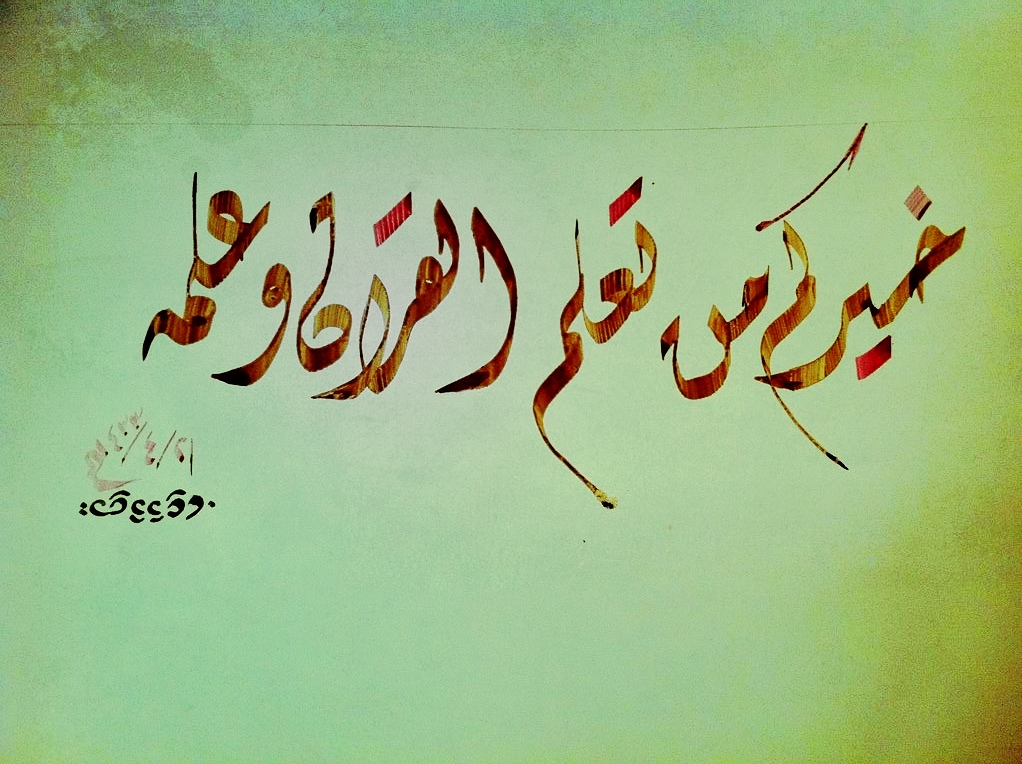 خيركم من تعلم القران وعلمه